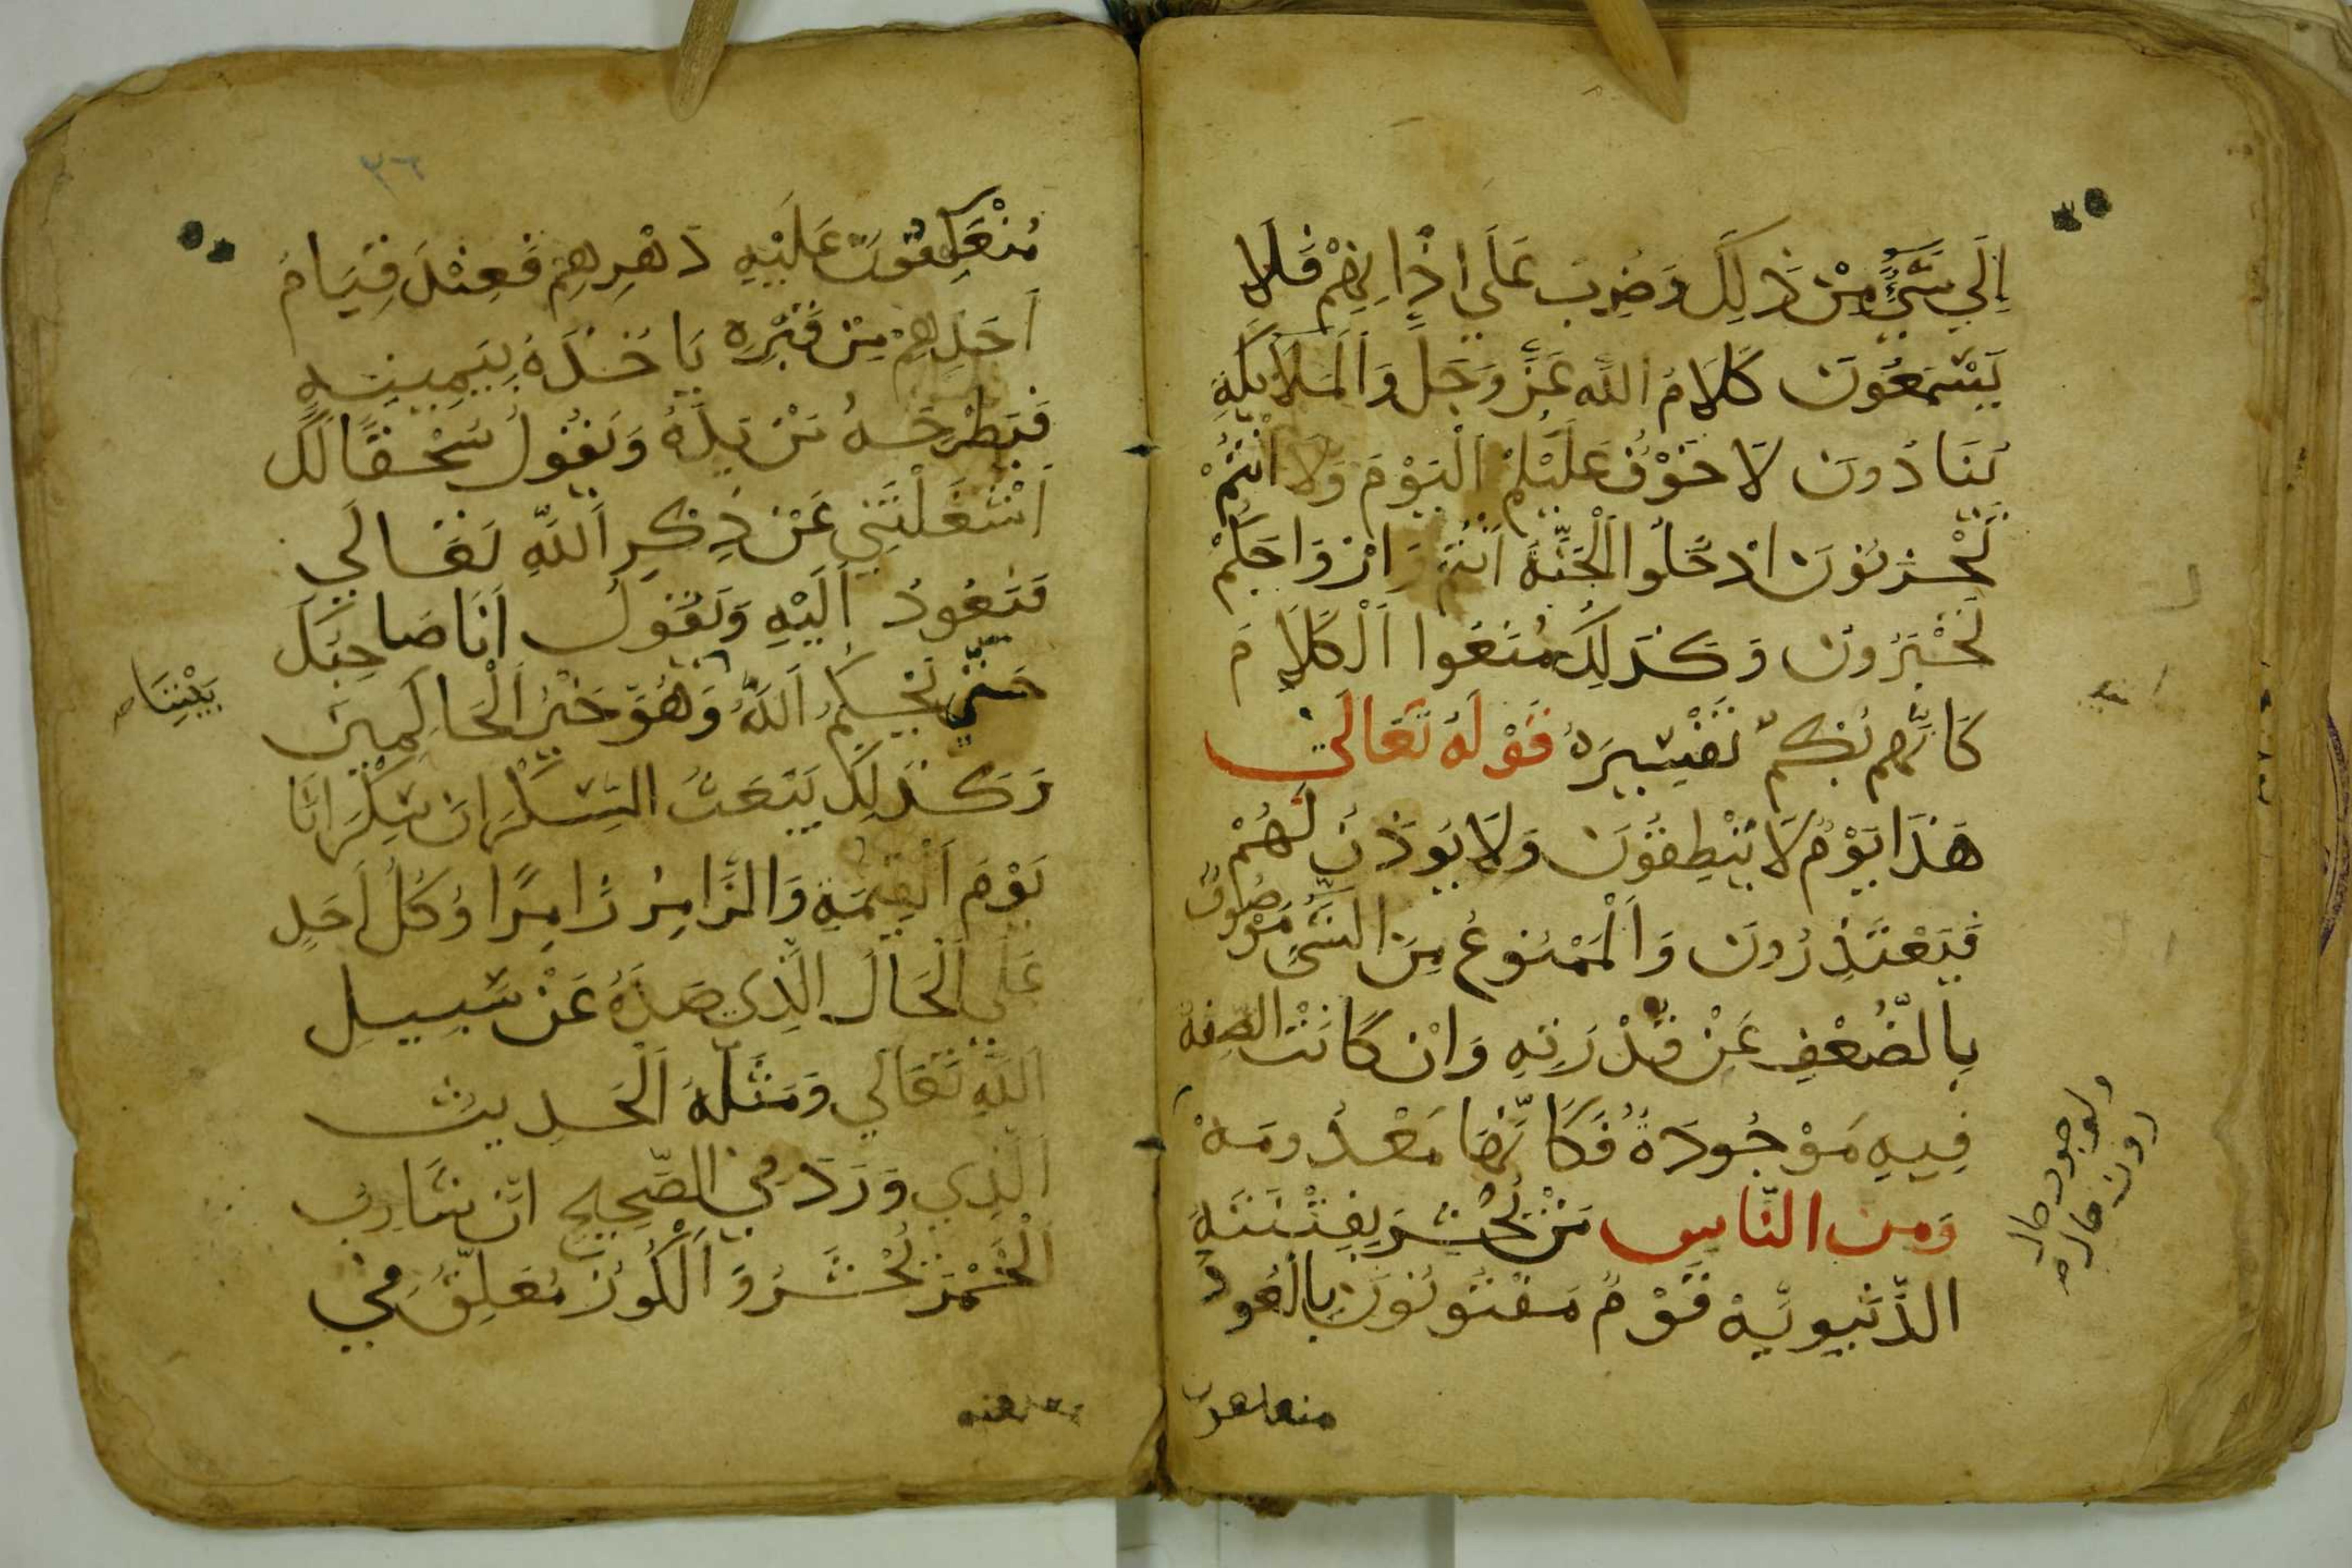 اِلَي شَيْءٍ مِنْ ذَلِكَ وَضُرِبَ عَلَي اذَانِهِمْ فَلَا
يَسْمَعُونَ كَلَامُ اللّه عَزَّ وَجَلَّ وَالْمَلَائِكَةِ
يُنَادُونَ لَا خَوْفُ عَلَيْكُمْ الْيَوْمَ وَلَا انْتُمْ
تَحْزنُونَ ادْخُلُوا الْجَنَّةَ اَنْتُمْ وَازْوَاجَكُمْ
تُحْبَرُونَ وَكَذَلِكَ مُنَعُوا اَلْكَلَامَ
كَانَّهم بُكمٌ تَفْسِيرَهُ قَوْلَهُ تَعَالَى
هَذَا يَوْمُ لَا يَنْطِقُونَ وَلَا يُوذَنُ لَهُمْ
فَيَعْتَذِرُونَ وَاَلْمَمْنُوعُ مِنَ الشَّيِّ مَوْصُوفٌ
بِالضُّعْفِ عَنْ قُدْرَتِهِ وَانْ كَانَتْ الصِفة
فِيهِ مَوْجُودَةً فَكَانَّهَا مَعْدُومَهْ
وَمِن النَّاسِ مَنْ يُحْشَرَ بِفِتْنَتَهِ
الدُّنْيويَّهْ قَوْمٌ مَفْتُونُونَ بِالْعُودِ
ولوجود حال
دون حاله
منعكفون
٣٦
مُنْعَكِفُونَ عَلَيْهِ دَهْرِهِمْ فَعِنْدَ قِيَامُ
اَحَدِهِمْ مِنْ قَبْرِهِ يَاخُذَهُ بِيَمِينِهِ
فَيَطْرَحَهُ مَنْ يَدَهُ وَيَقُولُ سُحْقًا لَكَ
اَشْغَلْتَنِي عَنْ ذِكْرِ اَللَّهِ تَعَالَي
فَيَعُودُ اَلَيْهِ وَيَقُولُ اَنَا صَاحِبُكَ
حَتَّي يَحْكُمُ اَللَّهُ وَهُوَ خَيْرُ اَلْحَاكِمِينَ
بَيْنِنَا صح
وَكَذَلِكَ يُبْعَثُ السَّكْرَانَ سَكْرَانَا
يَوْمَ اَلْقِيمَةِ وَالزَّامِرُ زَامِرًا وَكُلُ اَحَدٍ
عَلَي اَلْحَالَ الَّذِي صَدَّهُ عَنْ سَبِيلِ
اَللَّهِ تَعَالَي وَمَثَلَهُ اَلْحَدِيث
اَلَّذِي وَرَدَ فِي الصَّحِيحِ انَّ شَارِب
اَلْخَمْرَ يُحْشَرُ وَ اَلْكُوزُ مُعَلِّقٌ فِي